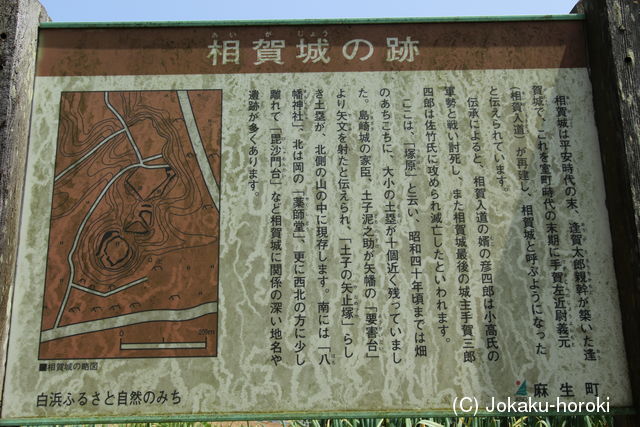 あいがじょう
相賀城の跡
相賀城は平安時代の末、逢賀太郎親幹が築いた逢
賀城で、これを室町時代の末期に手賀左近尉義元
（相賀入道）が再建し、相賀城と呼ぶようになった
と伝えられています。
伝承によると、相賀入道の婿の彦四郎は小高氏の
軍勢と戦い討死し、また相賀城最後の城主手賀三郎
四郎は佐竹氏に攻められ滅亡したといわれます。
ここは、「塚原」と云い、昭和四十年頃までは畑
のあちこちに、大小の土塁が十個近く残っていまし
た。島崎城の家臣、土子泥之助が矢幡の「要害台」
より矢文を射たと伝えられ、「土子の矢止塚」らし
き土塁が、北側の山の中に現存します。南には「八
幡神社」、北は岡の「薬師堂」、更に西北の方に少し
離れて「毘沙門台」など相賀城に関係の深い地名や
遺跡が多くあります。
200m
■相賀城の略図
白浜ふるさと自然のみち
麻生町
(C) Jokaku-horoki